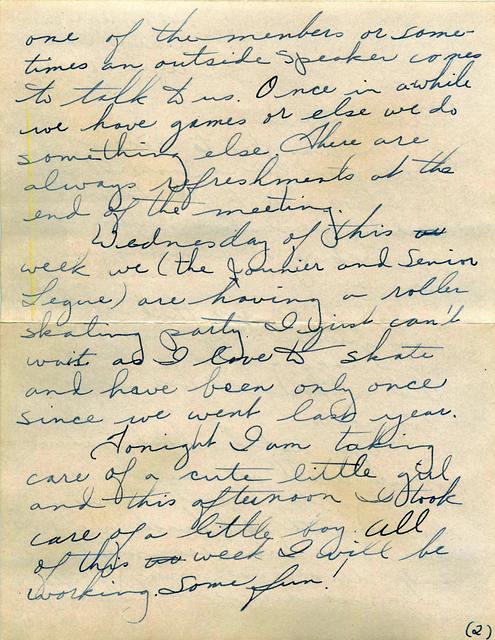 one of the members or some-
times an outside speaker comes
to talk to us. Once in awhile
we have games or else we do
something else. There are
always refreshments at the
end of the meeting.
Wednesday of this
week we (the Jounier and Senior
Legue) are having a roller
skating party. I just can't
wait as I love to skate
and have been only once
since we went last year.
Tonight I am taking
care of a cute little girl
and this afternoon I took
care of a little boy. All
of this week I will be
working. Some fun!
(2)